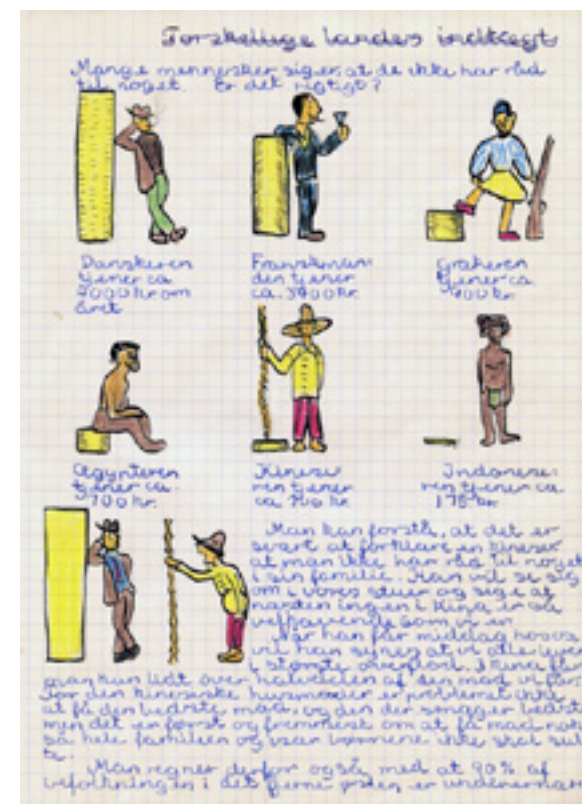 Forskellige landes indtægt
Mange mennesker siger, at de ikke har råd
til noget. Er det rigtigt?
Danskeren
tjener ca.
7000 kr om
året
Franskman-
den tjener
ca. 3400 kr.
Grækeren
tjener ca.
900 kr.
Ægypteren
tjener ca.
700 kr.
Kinese-
ren tjener
ca. kr.
Indonese-
ren tjener ca.
175 kr.
Man kan forstå, at det er
svært at forklare en kineser
at man ikke har råd til noget
i sin familie. Han vil se sig
om i vores stuer og sige at
næsten ingen i Kina er så
velhavende som vi er.
Når han får middag hos os,
vil han synes at vi alle lever
i største overflod. I Kina får
man kun lidt over halvdelen af den mad vi får.
For den kinesiske husmoder er problemet ikke
at få den bedste mad, og den der smager bedst
men det er først og fremmest om at få mad nok
så hele familien og især børnene ikke skal sul-
te.
Man regner derfor også med at 90% af
befolkningen i det fjerne østen er underernær